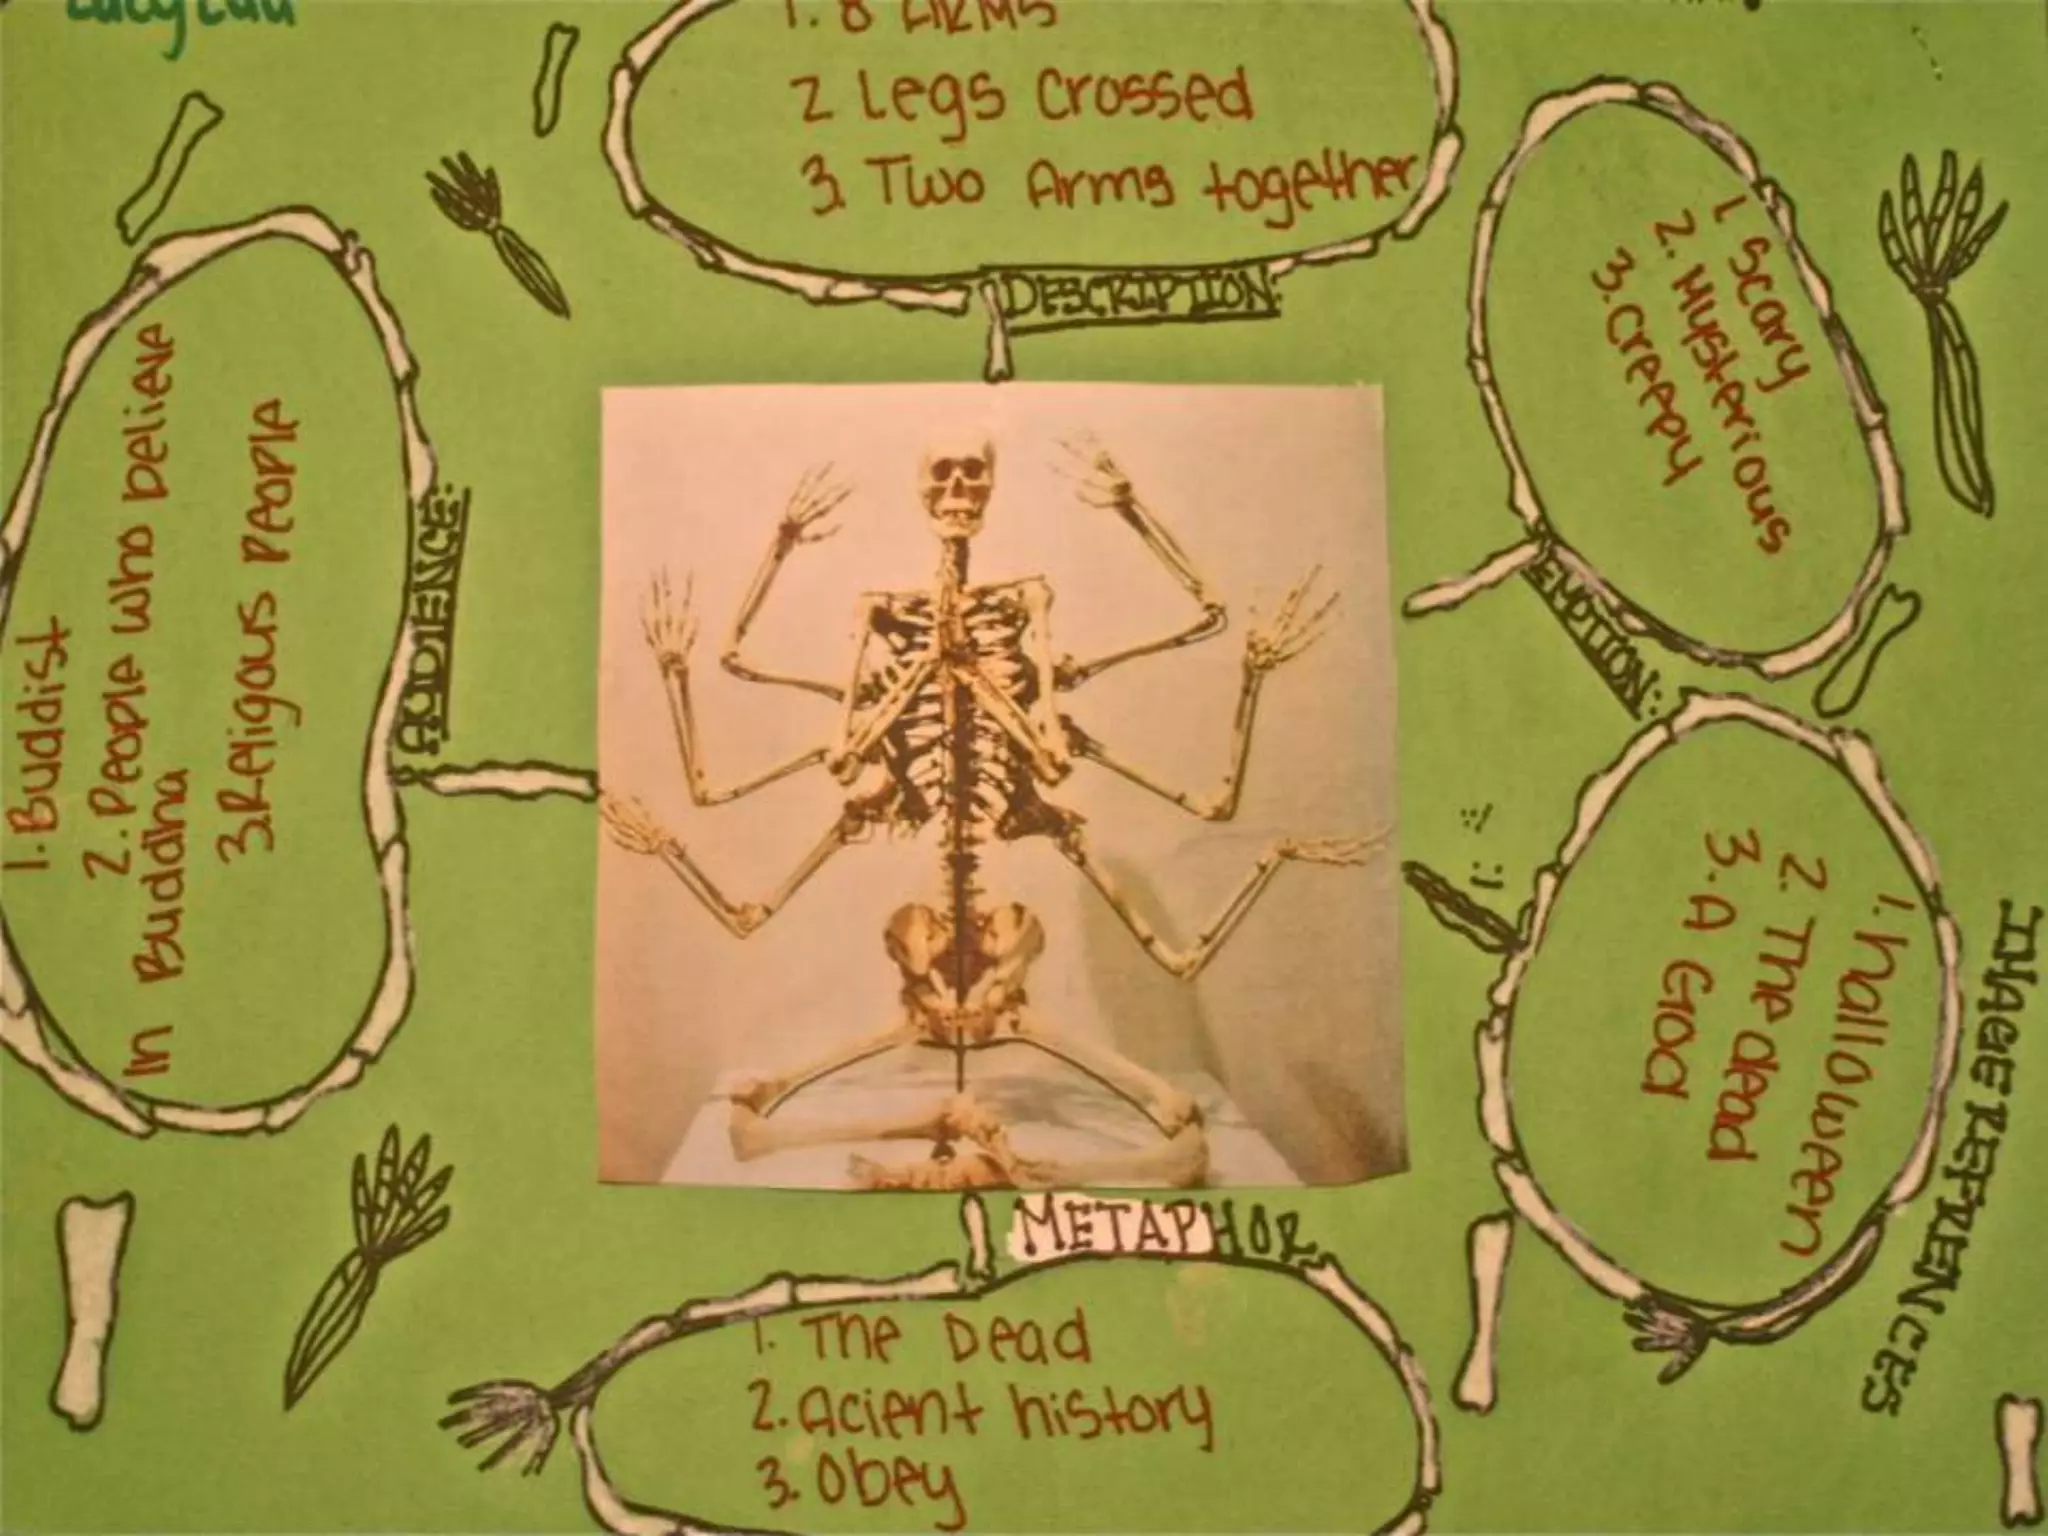 1. 8 ARMS
2 Legs Crossed
3. Two Arms together
DESCRIPTION:
1. Buddist
2. People who believe
in Buddha
3. Religous People
AUDIENCE:
1 Scary
2. Mysterious
3. Creepy
EMOTION:
1. halloween
2. The dead
3. A God
IMAGE REFRENCES
METAPHOR
1. The Dead
2. Acient history
3. Obey